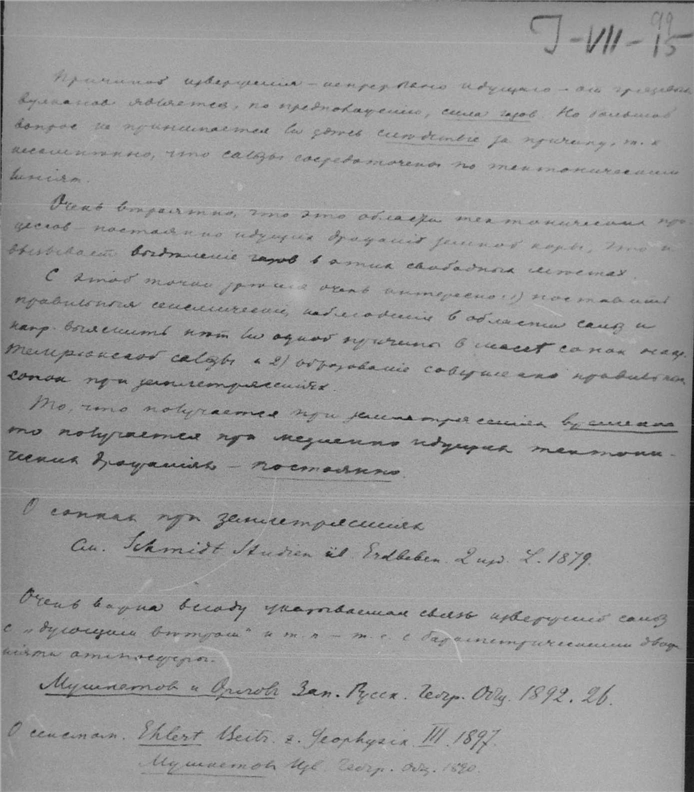 99
I-VII-15
Причиной извержения – непрерывно идущаго – ... грязевых
вулканов является, по предположению, сила газов. Но большой
вопрос не принимается ли здесь следствие за причину, т. к
несомненно, что сальзы сосредоточены по тектоническим
линіям.
Очень вероятно, что это области тектонических про-
цессов – постоянно идущих дрожаній земной коры, что и
вызывает выделеніе газов в этих свободных местах.
С этой точки зрения очень интересно: 1) поставить
правильныя сейсмическия наблюдения в области сальз и
напр. выяснить нет ли одной причины в сопок
сальзы и 2) образование совершенно
сопок при землетрясениях.
То, что получается при землетрясениях
то получается при медленно идущих тектони-
ческих дрожаніях – постоянно.
О сопках при землетрясениях
См. Schmidt Studien üb. Erdbeben. 2 изд. L. 1879.
Очень важна всюду указываемая связь извержений сальз
с „дующим ветром" и т п – т. е. с барометрическими
атмосферы.
Мушкетов и Орлов Зап. Русск. Геогр. Общ. 1892. 26.
О сейсмол. Ehlert Beitr. z. Geophysik III. 1897.
Мушкетов Изв. Геогр. Общ. 1890.